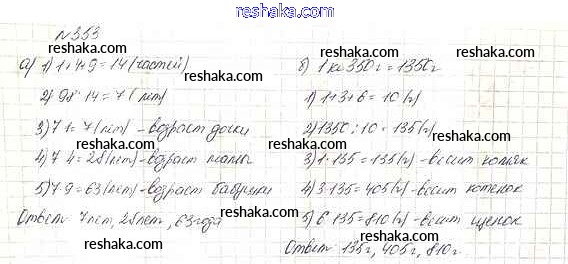 www.reshaka.com
№353
reshaka.com
reshaka.com
а) 1) 1+4+9=14 (частей)
2) 98:14=7 (лет)
reshaka.com
3) 7·1=7 (лет) - возраст дочки
reshaka.com
4) 7·4=28 (лет) - возраст мамы
reshaka.com
5) 7·9=63 (лет) - возраст бабушки
Ответ 7 лет, 28 лет, 63 года
reshaka.com
б) 1 кг 350 г = 1350 г
reshaka.com
1) 1+3+6=10 (ч)
reshaka.com
2) 1350:10=135 (г)
reshaka.com
3) 1·135=135 (г) - весит
reshaka.com
4) 3·135=405 (г) - весит котенок
reshaka.com
5) 6·135=810 (г) - весит щенок
reshaka.com
Ответ 135 г, 405 г, 810 г.
www.reshaka.com